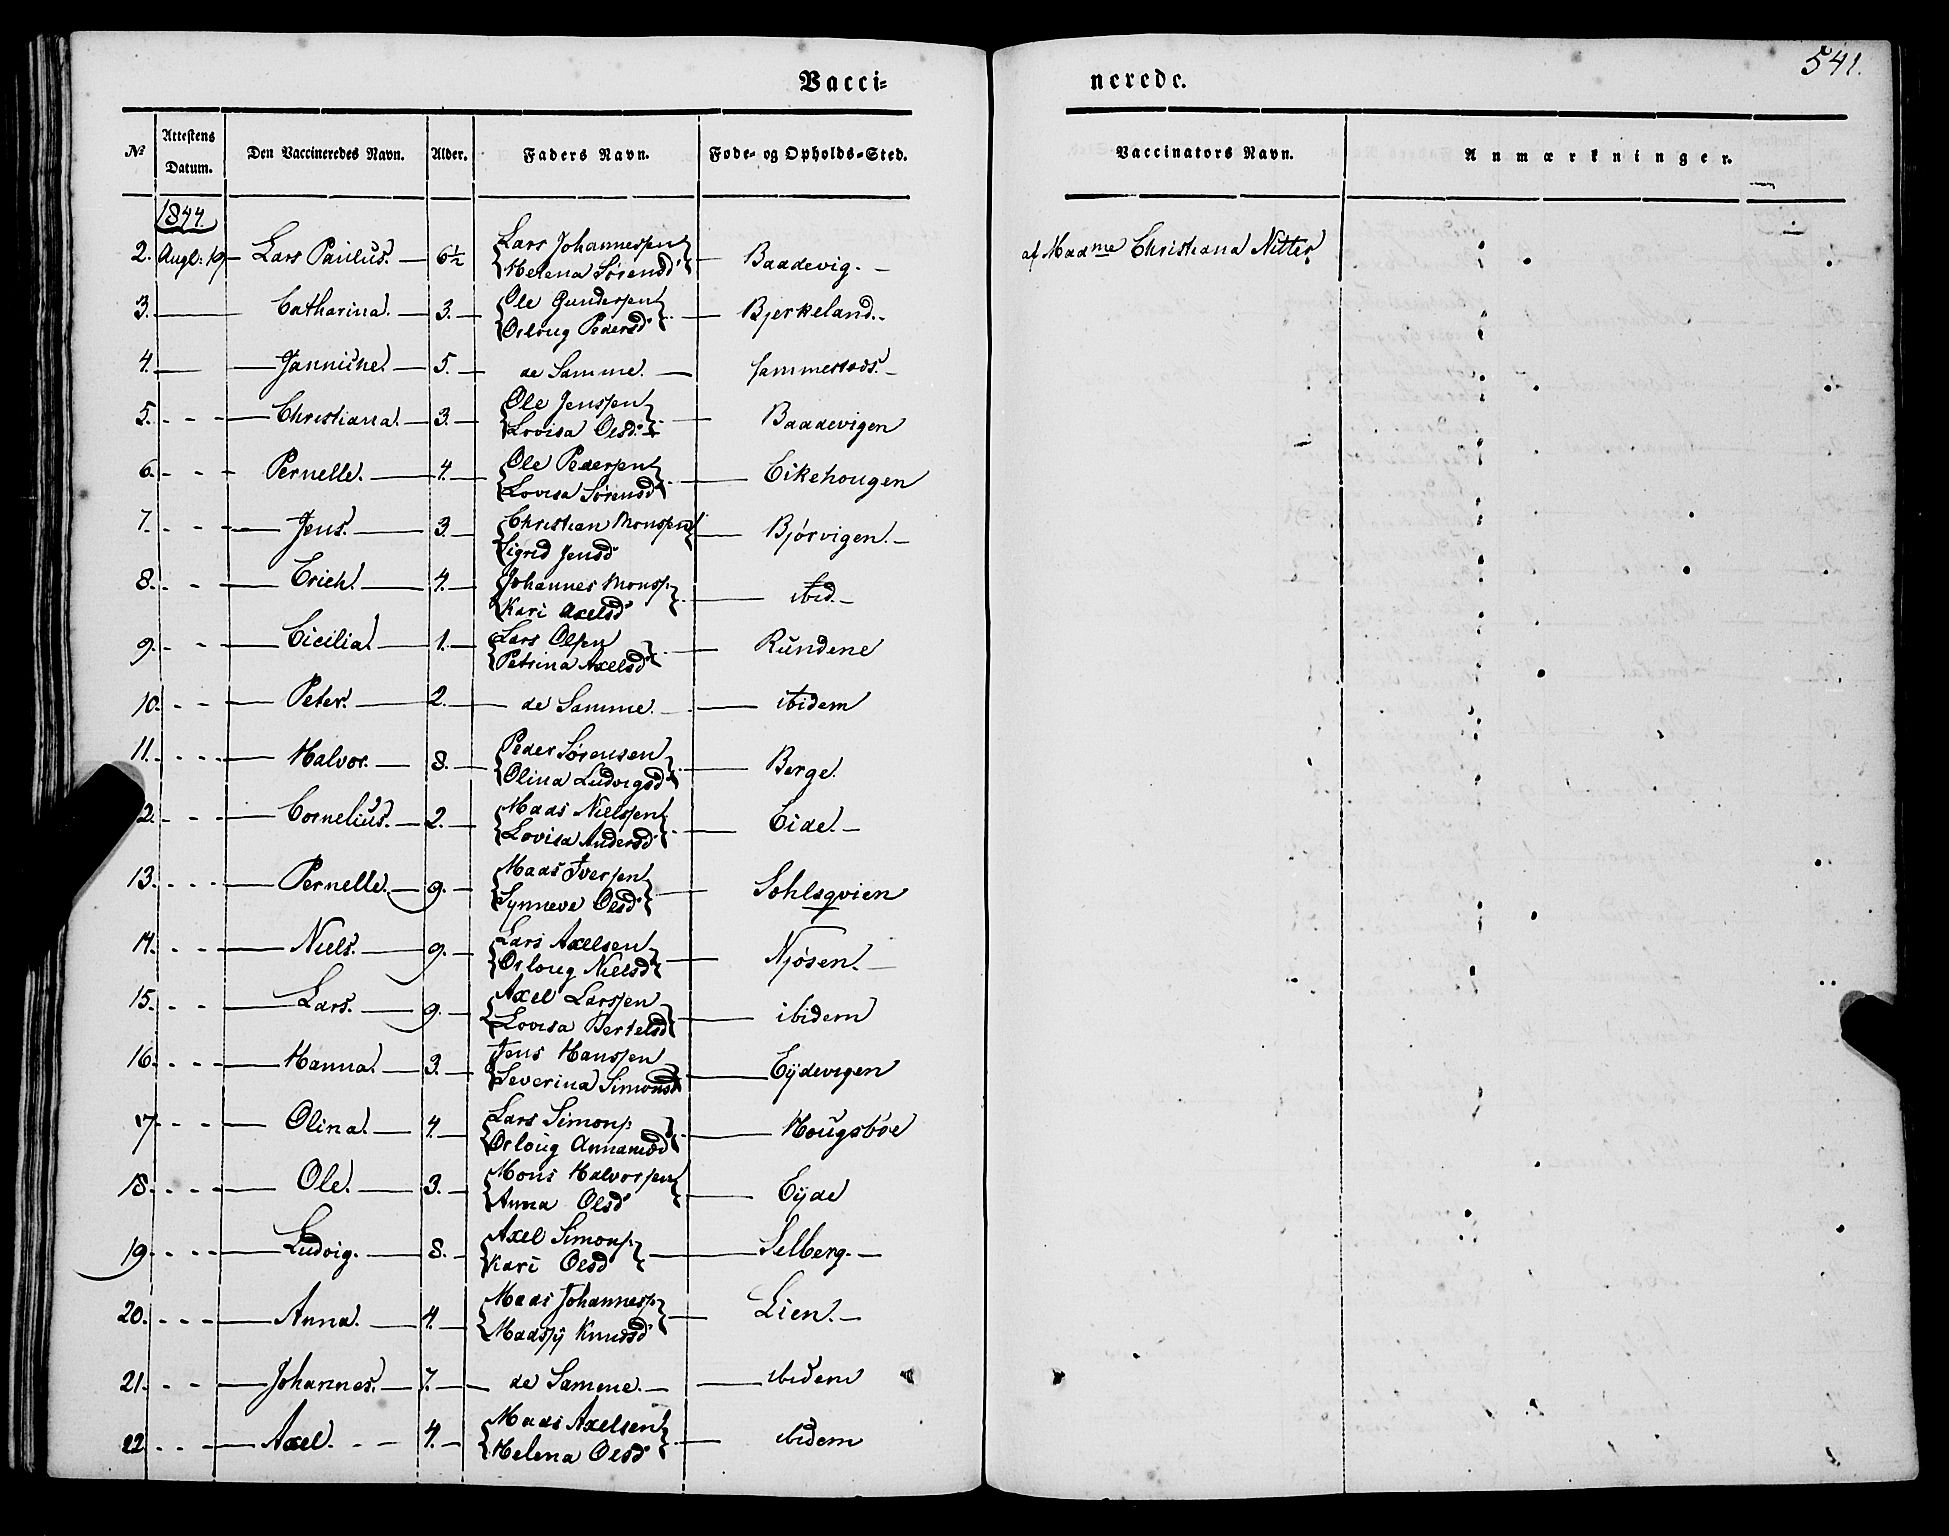 541.
Vacci-
nerede.
No
Attestens Datum.
Den Vaccineredes Navn.
Alder.
Faders Navn.
Føde- og Opholds-Sted.
Vaccinators Navn.
Anmærkninger.
1844.
2. Augl: 19 Lars Paulus. 6½ Lars Johannessen Helena Sørensd Baadevig. af Madme Christiana Nitter
3. Catharina. 3. Ole Gundersen Orloug Pedersd Bjerkeland.
4. Jannicke. 5. de Samme. sammesteds.
5. Christiana. 3. Ole Jenssen Lovisa Olsd: Baadevigen
6. Pernelle. 4. Ole Pedersen Lovisa Sørensd Eikehougen
7. Jens. 3. Christian Monssen Sigrid Jensd Bjørvigen.
8. Erich. 4. Johannes Monss. Kari Axelsd ibid.
9. Cicilia. 1. Lars Olsen Petrina Axelsd Rundene
10. Peter. 2. de Samme. ibidem
11. Halvor. 8. Peder Sørensen Olina Ludvigsd Berge.
2. Cornelius. 2. Mads Nielssen Lovisa Andersd Eide.
13. Pernelle. 9. Mads Iversen Synneve Olsd Sohlsqvien
14. Niels. 9. Lars Axelsen Orloug Nielsd Njøsen.
15. Lars. 9. Axel Larssen Lovisa Bertelsd ibidem
16. Hanna. 3. Jens Hanssen Severina Simonsd Eÿdevigen
17. Olina. 4. Lars Simons. Orloug Hougsbøe
18. Ole. 3. Mons Halvorssen Anna Olsd Eÿde
19. Ludvig. 8. Axel Simons. Kari Olsd Selberg.
20. Anna. 4. Mads Johanness. Madsÿ Knudsd Lien.
21. Johannes. 7. de Samme. ibidem
22 Axel. 4. Mads Axelsen Helena Olsd ibidem